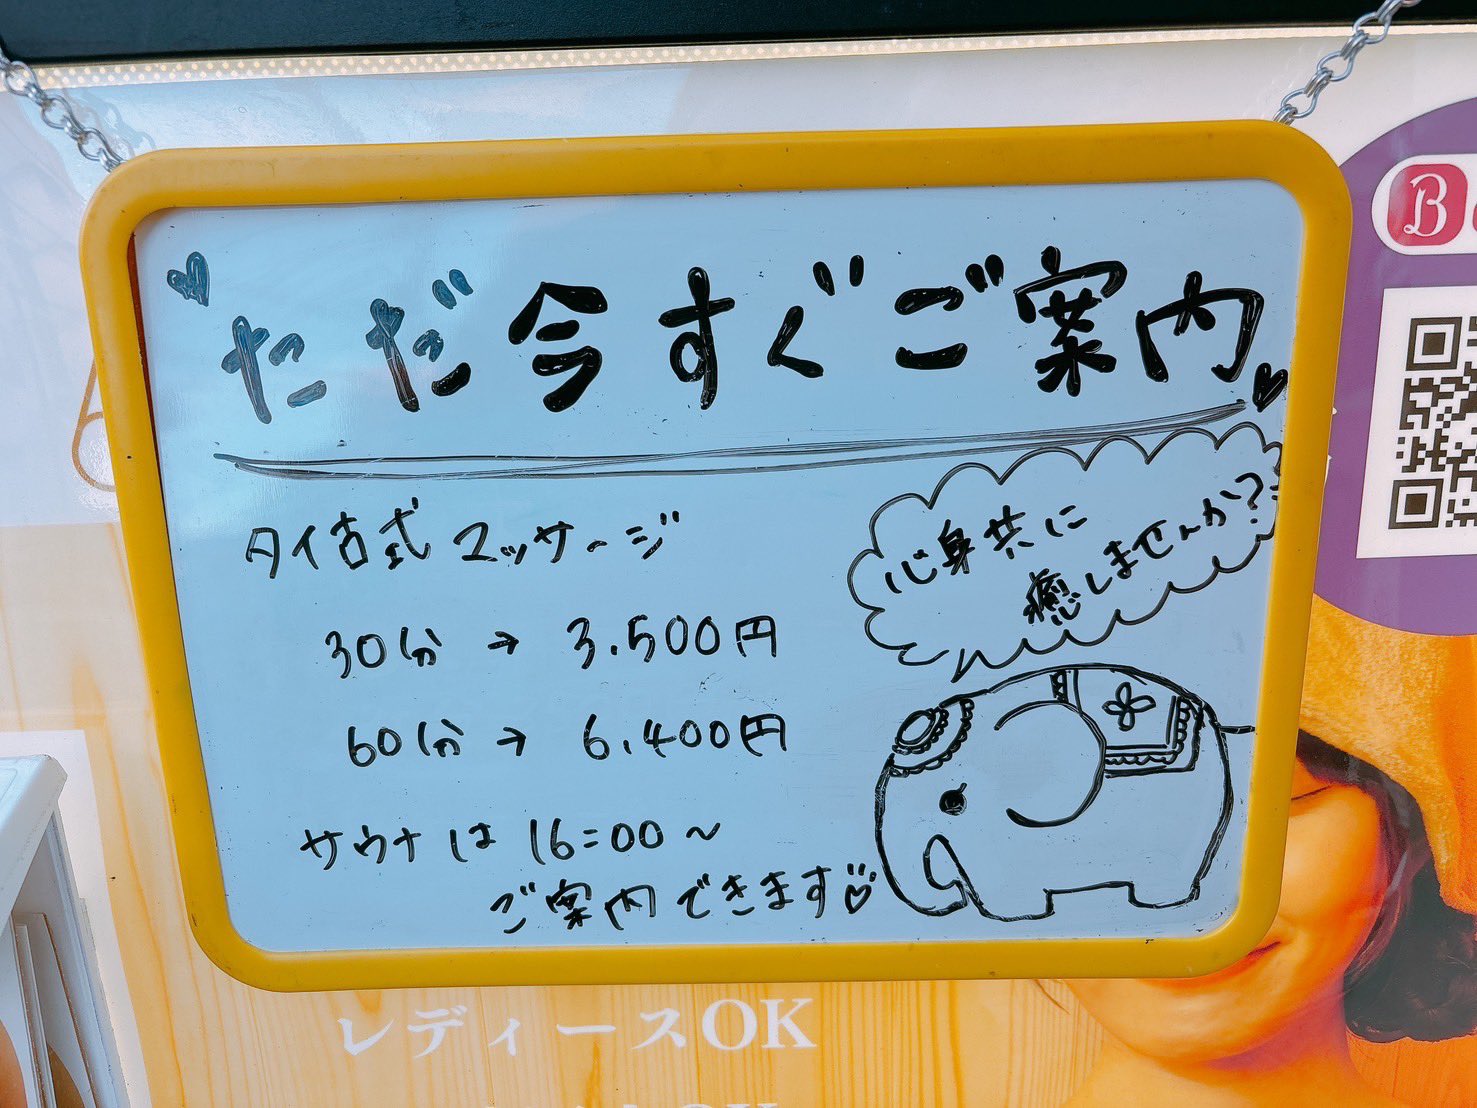 ただ今すぐご案内
タイ古式マッサージ
30分 → 3.500円
60分 → 6.400円
サウナは 16:00～
ご案内できます
心身共に
癒しませんか?
B
レディースOK